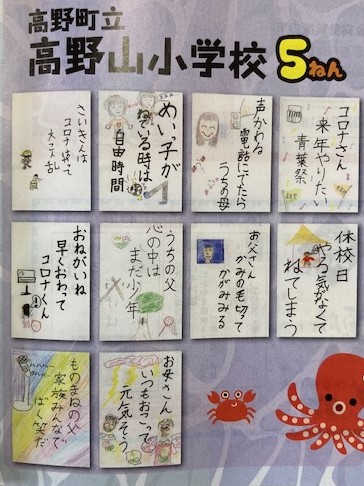 高野町立
高野山小学校 5ねん
コロナさん
来年やりたい
青葉祭
声かわる
電話にでたら
うちの母
めい子が
ねている時は
自由時間
さいきんは
コロナ待って
大こん乱
休校日
やる気がなくて
ねてしまう
お父さん
かみの毛切って
かがみみる
うちの父
心の中は
まだ少年
おねがいね
早くおわって
コロナくん
お母さん
いつもおこって
元気そう
ものまねの父
家族みんなで
ばく笑だ